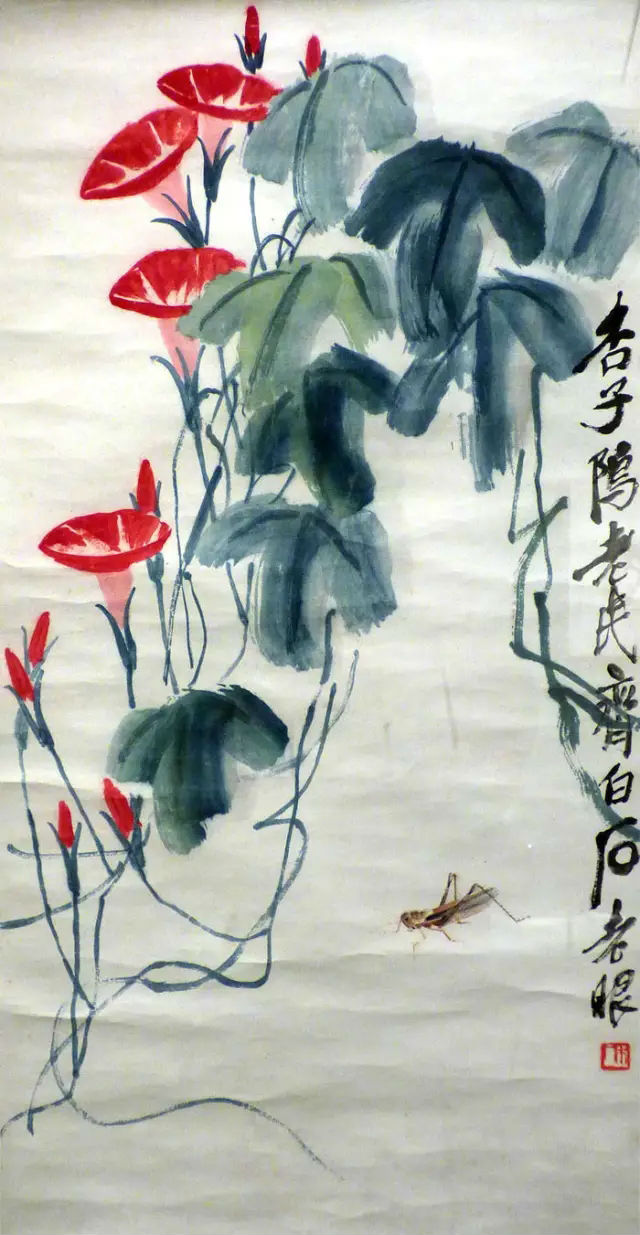 杏子隖老民齊白石老眼